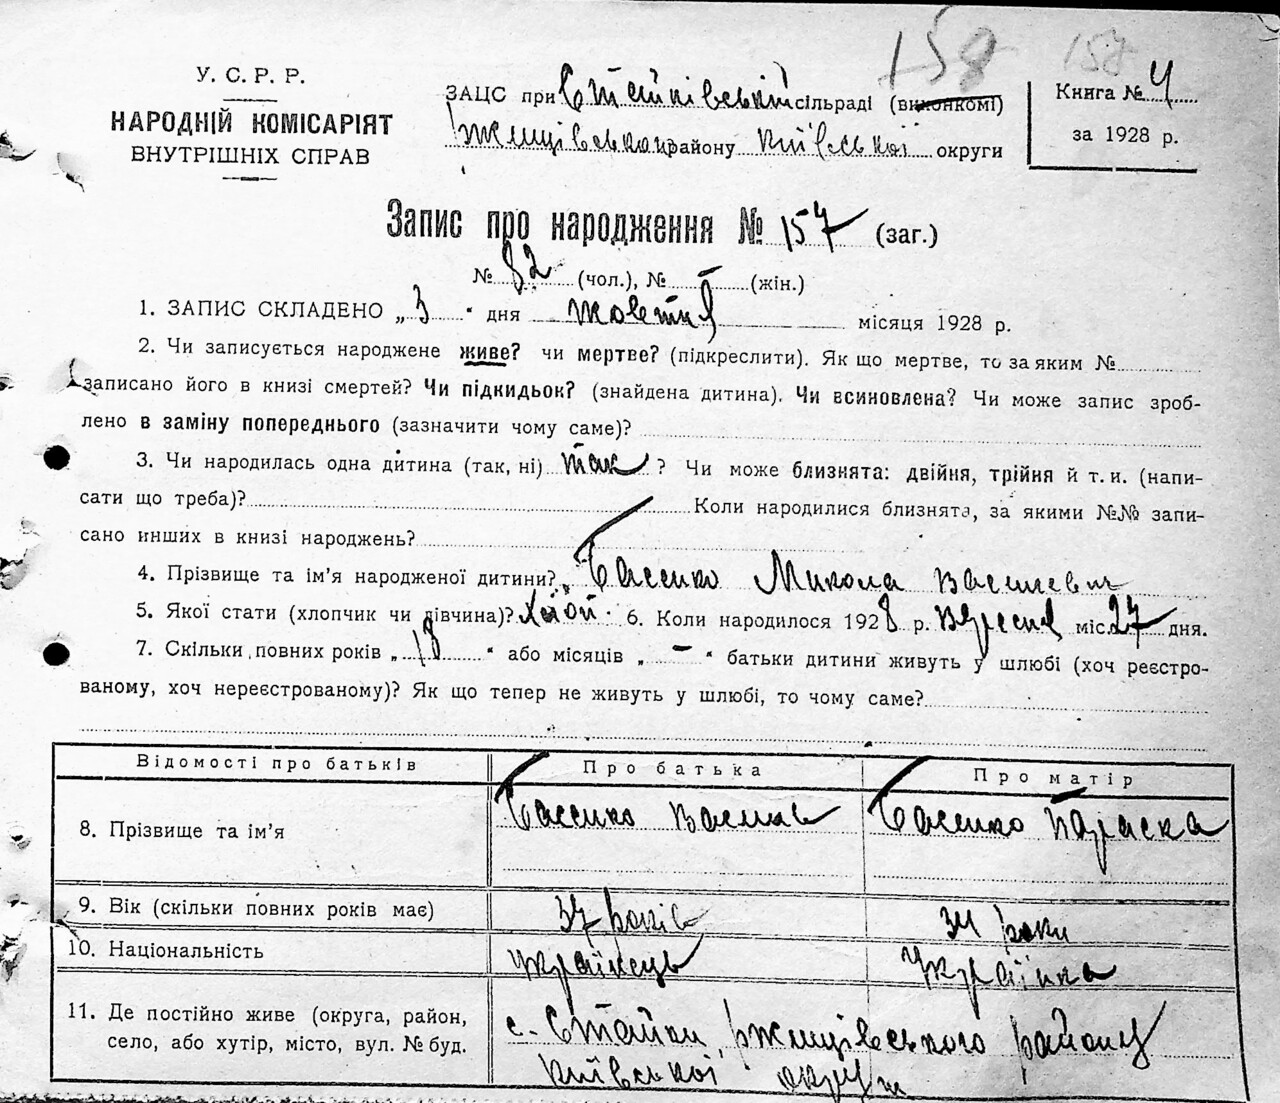 158 158
У. С. Р. Р.
НАРОДНІЙ КОМІСАРІЯТ
ВНУТРІШНІХ СПРАВ
ЗАЦС при Стайківській сільраді (виконкомі)
Ржищівського району Київської округи
Книга № 4
за 1928 р.
Запис про народження № 157 (заг.)
№ 82 (чол.), № – (жін.)
1. ЗАПИС СКЛАДЕНО „3" дня жовтня місяця 1928 р.
2. Чи записується народжене живе? чи мертве? (підкреслити). Як що мертве, то за яким №
записано його в книзі смертей? Чи підкидьок? (знайдена дитина). Чи всиновлена? Чи може запис зроб-
лено в заміну попереднього (зазначити чому саме)?
3. Чи народилась одна дитина (так, ні) так ? Чи може близнята: двійня, трійня й т. и. (напи-
сати що треба)? Коли народилися близнята, за якими №№ запи-
сано инших в книзі народжень?
4. Прізвище та ім'я народженої дитини? Микола Васильевич
5. Якої стати (хлопчик чи дівчина)? 6. Коли народилося 1928 р. Вересня міс. 27 дня.
7. Скільки повних років „13" або місяців „–" батьки дитини живуть у шлюбі (хоч реєстро-
ваному, хоч нереєстрованому)? Як що тепер не живуть у шлюбі, то чому саме?
Відомості про батьків Про батька Про матір
8. Прізвище та ім'я Василь Параска
9. Вік (скільки повних років має) 37 років 34 роки
10. Національність Українець Українка
11. Де постійно живе (округа, район,
село, або хутір, місто, вул. № буд.
с. Стайки, Ржищівського району
Київської округи